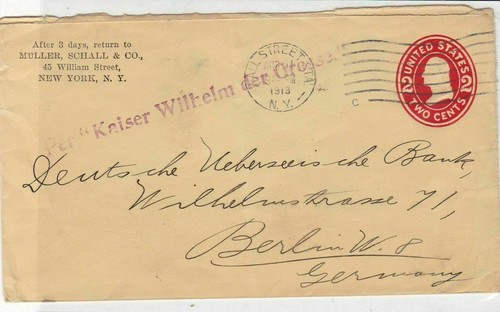 After 3 days, return to
MULLER, SCHALL & CO.,
45 William Street,
NEW YORK, N. Y.
WALL STREET STA.
1913
N.Y.
C
UNITED STATES
2 2
TWO CENTS
Per "Kaiser Wilhelm der Grosse"
Deutsche Ueberseeische Bank,
Wilhelmstrasse 71,
Berlin W. 8
Germany